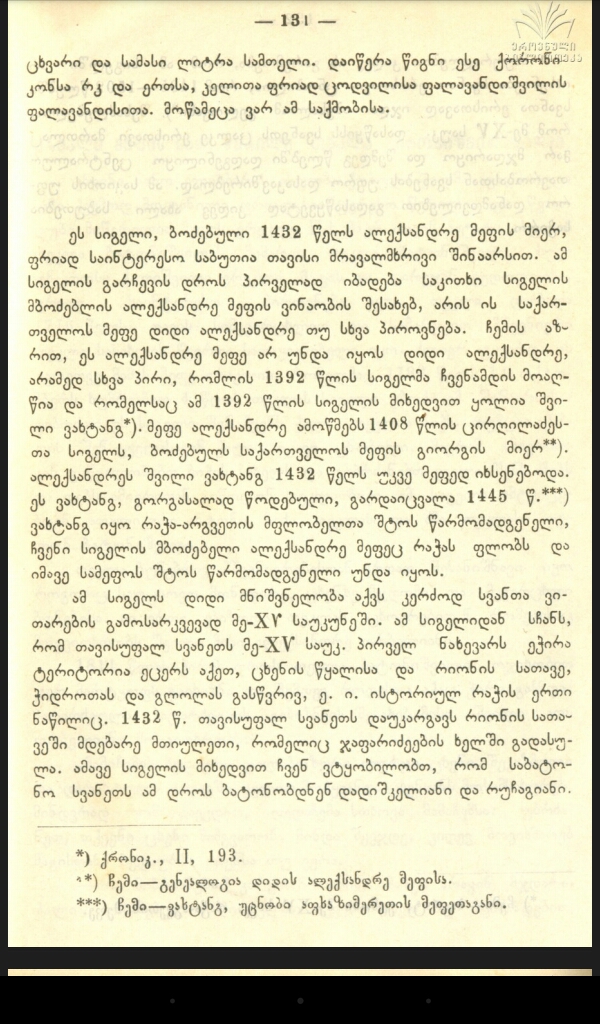 — 131 —
ეროვნული
ბიბლიოთეკა
ცხვარი და სამასი ლიტრა სამთელი. დაიწერა წიგნი ესე ქორონი-
კონსა რკ და ერთსა, კელითა ფრიად ცოდვილისა ფალავანდიშვილის
ფალავანდისითა. მოწამეცა ვარ ამ საქმობისა.
ეს სიგელი, ბოძებული 1432 წელს ალექსანდრე მეფის მიერ,
ფრიად საინტერესო საბუთია თავისი მრავალმხრივი შინაარსით. ამ
სიგელის გარჩევის დროს პირველად იბადება საკითხი სიგელის
მბოძებლის ალექსანდრე მეფის ვინაობის შესახებ, არის ის საქარ-
თველოს მეფე დიდი ალექსანდრე თუ სხვა პიროვნება. ჩემის აზ-
რით, ეს ალექსანდრე მეფე არ უნდა იყოს დიდი ალექსანდრე,
არამედ სხვა პირი, რომლის 1392 წლის სიგელმა ჩვენამდის მოაღ-
წია და რომელსაც ამ 1392 წლის სიგელის მიხედვით ყოლია შვი-
ლი ვახტანგ*). მეფე ალექსანდრე ამოწმებს 1408 წლის ცირღილაძეს-
თა სიგელს, ბოძებულს საქართველოს მეფის გიორგის მიერ**).
ალექსანდრეს შვილი ვახტანგ 1432 წელს უკვე მეფედ იხსენებოდა.
ეს ვახტანგ, გორგასალად წოდებული, გარდაიცვალა 1445 წ.***)
ვახტანგ იყო რაჭა-არგვეთის მფლობელთა შტოს წარმომადგენელი,
ჩვენი სიგელის მბოძებელი ალექსანდრე მეფეც რაჭას ფლობს და
იმავე სამეფოს შტოს წარმომადგენელი უნდა იყოს.
ამ სიგელს დიდი მნიშვნელობა აქვს კერძოდ სვანთა ვი-
თარების გამოსარკვევად მე-XV საუკუნეში. ამ სიგელიდან სჩანს,
რომ თავისუფალ სვანეთს მე-XV საუკ. პირველ ნახევარს ეჭირა
ტერიტორია ეცერს აქეთ, ცხენის წყალისა და რიონის სათავე,
ჭიდროთას და გლოლას გასწვრივ, ე. ი. ისტორიულ რაჭის ერთი
ნაწილიც. 1432 წ. თავისუფალ სვანეთს დაუკარგავს რიონის სათა-
ვეში მდებარე მთიულეთი, რომელიც ჯაფარიძეების ხელში გადასუ-
ლა. ამავე სიგელის მიხედვით ჩვენ ვტყობილობთ, რომ საბატო-
ნო სვანეთს ამ დროს ბატონობდნენ დადიშკელიანი და რუჩაგიანი.
*) ქრონიკ., II, 193.
**) ჩემი—გენეალოგია დიდის ალექსანდრე მეფისა.
***) ჩემი—ვახტანგ, უცნობი აფხაზიმერეთის მეფეთაგანი.